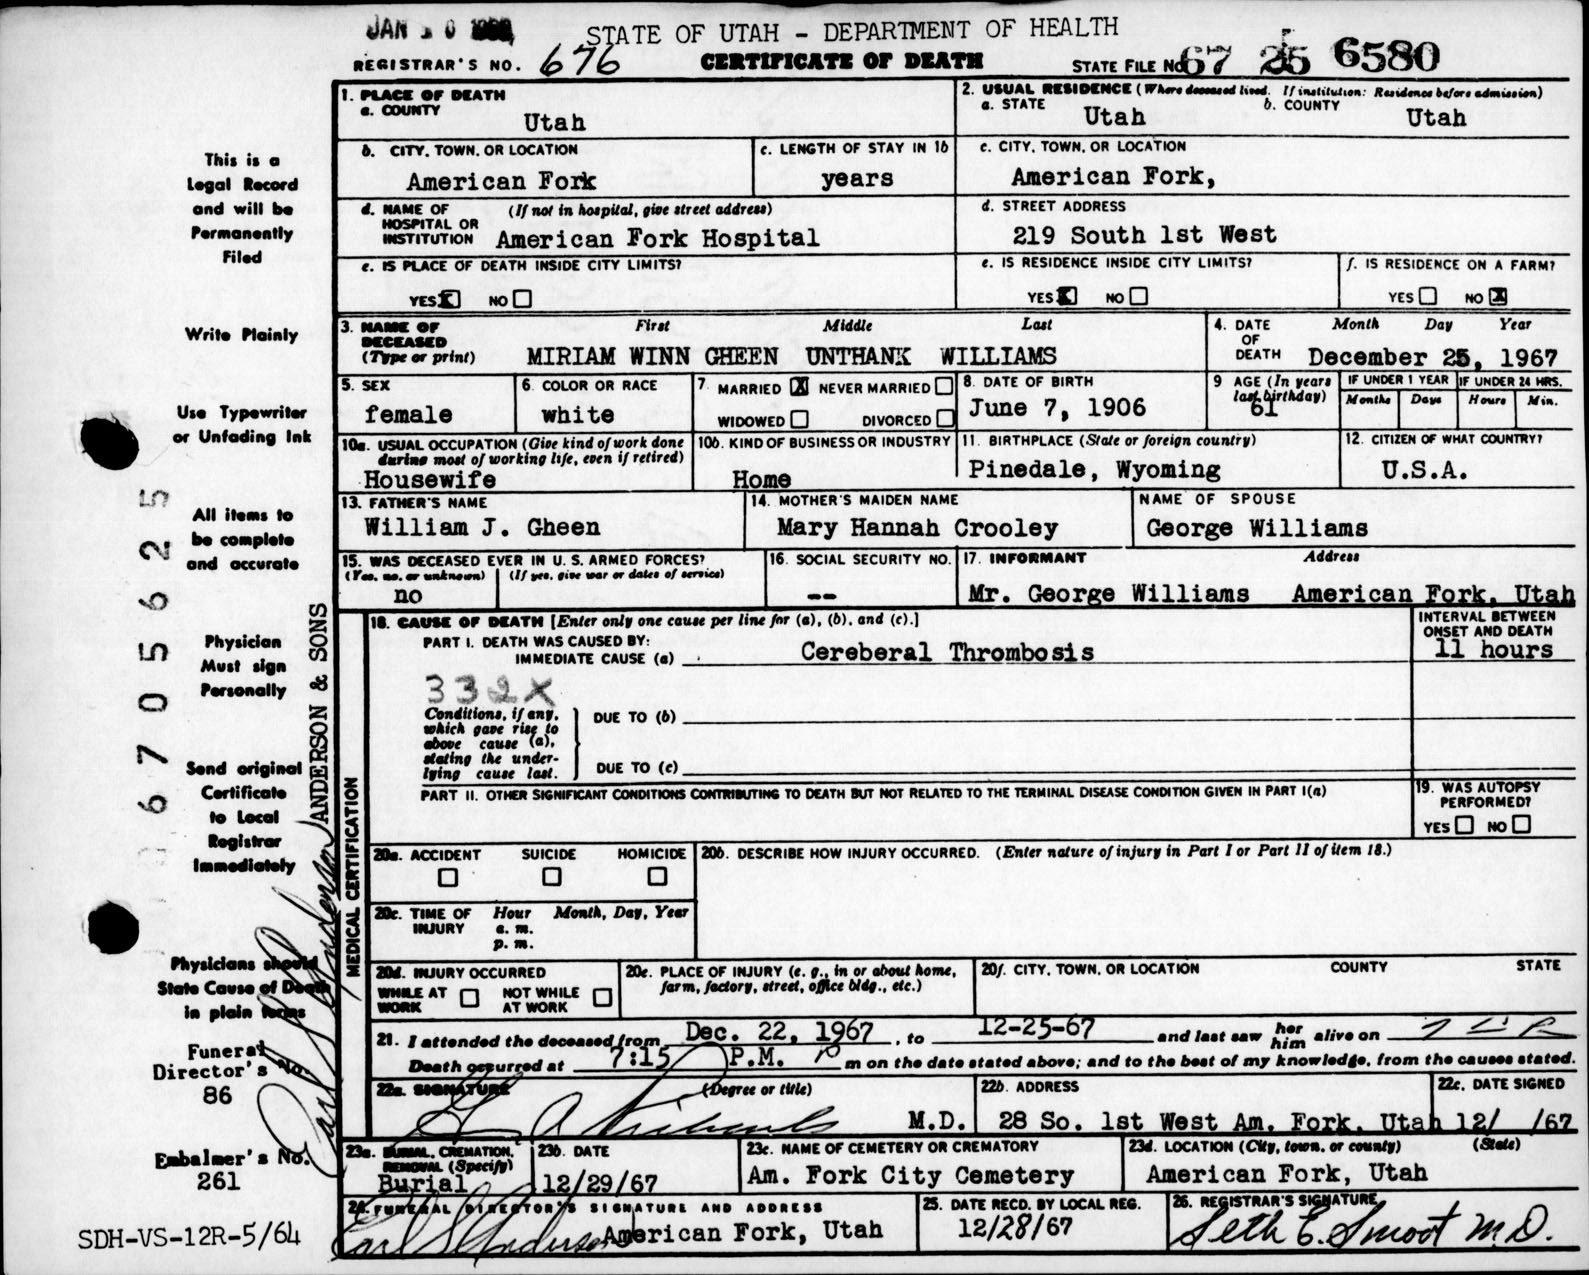 JAN 10
STATE OF UTAH - DEPARTMENT OF HEALTH
REGISTRAR'S NO. 676 CERTIFICATE OF DEATH STATE FILE NO. 67 25 6580
1. PLACE OF DEATH
a. COUNTY
Utah
2. USUAL RESIDENCE (Where deceased lived. If institution: Residence before admission)
a. STATE b. COUNTY
Utah Utah
b. CITY, TOWN, OR LOCATION
American Fork
c. LENGTH OF STAY IN 1b
years
c. CITY, TOWN, OR LOCATION
American Fork,
d. NAME OF (If not in hospital, give street address)
HOSPITAL OR
INSTITUTION American Fork Hospital
d. STREET ADDRESS
219 South 1st West
e. IS PLACE OF DEATH INSIDE CITY LIMITS?
YES X NO
e. IS RESIDENCE INSIDE CITY LIMITS?
YES X NO
f. IS RESIDENCE ON A FARM?
YES NO X
3. NAME OF DECEASED (Type or print)
First Middle Last
MIRIAM WINN GHEEN UNTHANK WILLIAMS
4. DATE OF DEATH
Month Day Year
December 25, 1967
5. SEX
female
6. COLOR OR RACE
white
7. MARRIED X NEVER MARRIED
WIDOWED DIVORCED
8. DATE OF BIRTH
June 7, 1906
9 AGE (In years last birthday)
61
IF UNDER 1 YEAR IF UNDER 24 HRS.
Months Days Hours Min.
10a. USUAL OCCUPATION (Give kind of work done
during most of working life, even if retired)
Housewife
10b. KIND OF BUSINESS OR INDUSTRY
Home
11. BIRTHPLACE (State or foreign country)
Pinedale, Wyoming
12. CITIZEN OF WHAT COUNTRY?
U.S.A.
13. FATHER'S NAME
William J. Gheen
14. MOTHER'S MAIDEN NAME
Mary Hannah Crooley
NAME OF SPOUSE
George Williams
15. WAS DECEASED EVER IN U. S. ARMED FORCES?
(Yes, no, or unknown) (If yes, give war or dates of service)
no
16. SOCIAL SECURITY NO.
--
17. INFORMANT Address
Mr. George Williams American Fork, Utah
18. CAUSE OF DEATH [Enter only one cause per line for (a), (b), and (c).]
PART I. DEATH WAS CAUSED BY:
IMMEDIATE CAUSE (a) Cereberal Thrombosis
INTERVAL BETWEEN
ONSET AND DEATH
11 hours
332X
Conditions, if any,
which gave rise to
above cause (a),
stating the under-
lying cause last.
DUE TO (b)
DUE TO (c)
PART II. OTHER SIGNIFICANT CONDITIONS CONTRIBUTING TO DEATH BUT NOT RELATED TO THE TERMINAL DISEASE CONDITION GIVEN IN PART I(a)
19. WAS AUTOPSY
PERFORMED?
YES NO
MEDICAL CERTIFICATION
20a. ACCIDENT SUICIDE HOMICIDE
20b. DESCRIBE HOW INJURY OCCURRED. (Enter nature of injury in Part I or Part II of item 18.)
20c. TIME OF INJURY
Hour Month, Day, Year
a. m.
p. m.
20d. INJURY OCCURRED
WHILE AT WORK NOT WHILE AT WORK
20e. PLACE OF INJURY (e. g., in or about home,
farm, factory, street, office bldg., etc.)
20f. CITY, TOWN, OR LOCATION COUNTY STATE
21. I attended the deceased from Dec. 22, 1967, to 12-25-67 and last saw her him alive on
Death occurred at 7:15 P.M. m on the date stated above; and to the best of my knowledge, from the causes stated.
22a. SIGNATURE (Degree or title)
M.D.
22b. ADDRESS
28 So. 1st West Am. Fork, Utah
22c. DATE SIGNED
12/ /67
23a. BURIAL, CREMATION,
REMOVAL (Specify)
Burial
23b. DATE
12/29/67
23c. NAME OF CEMETERY OR CREMATORY
Am. Fork City Cemetery
23d. LOCATION (City, town, or county) (State)
American Fork, Utah
24. FUNERAL DIRECTOR'S SIGNATURE AND ADDRESS
Anderson American Fork, Utah
25. DATE RECD. BY LOCAL REG.
12/28/67
26. REGISTRAR'S SIGNATURE
Seth E. Smoot M.D.
This is a
Legal Record
and will be
Permanently
Filed
Write Plainly
Use Typewriter
or Unfading Ink
All items to
be complete
and accurate
Physician
Must sign
Personally
Send original
Certificate
to Local
Registrar
Immediately
Physicians should
State Cause of Death
in plain terms
Funeral
Director's No.
86
Embalmer's No.
261
SDH-VS-12R-5/64
67056625
ANDERSON & SONS